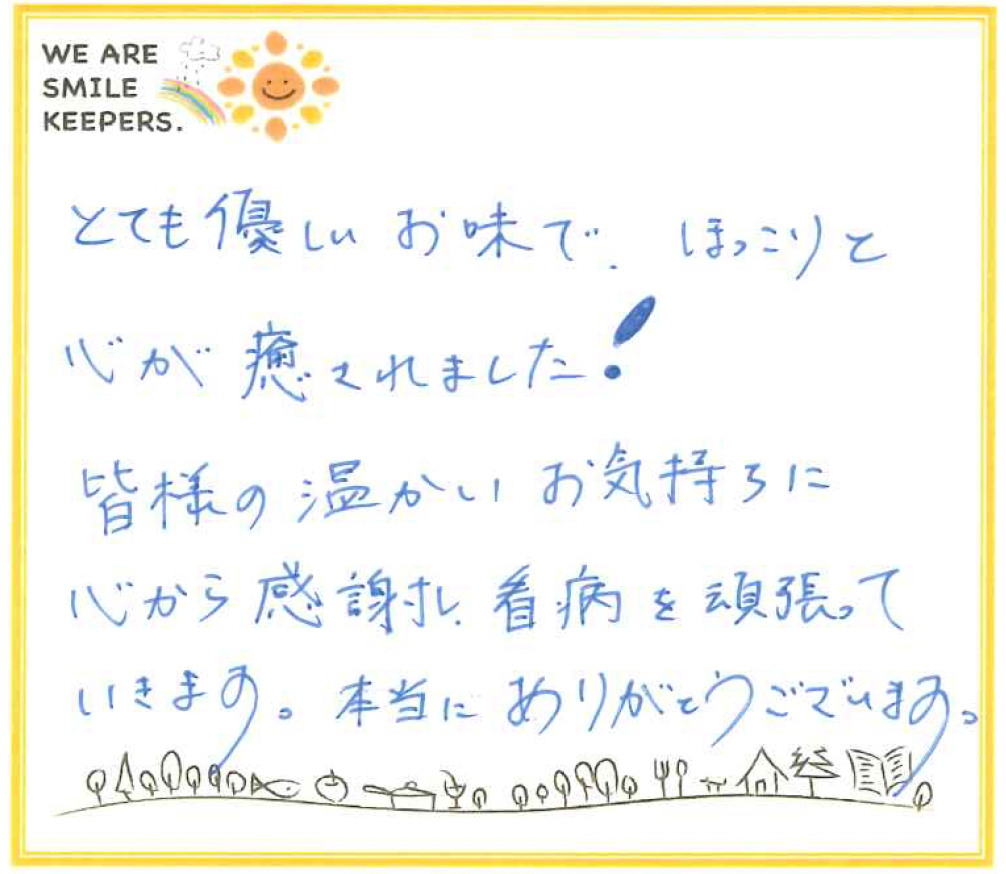 WE ARE
SMILE
KEEPERS.
とても優しいお味で、ほっこりと
心が癒されました!
皆様の温かいお気持ちに
心から感謝し、看病を頑張って
いきます。本当にありがとうございます。